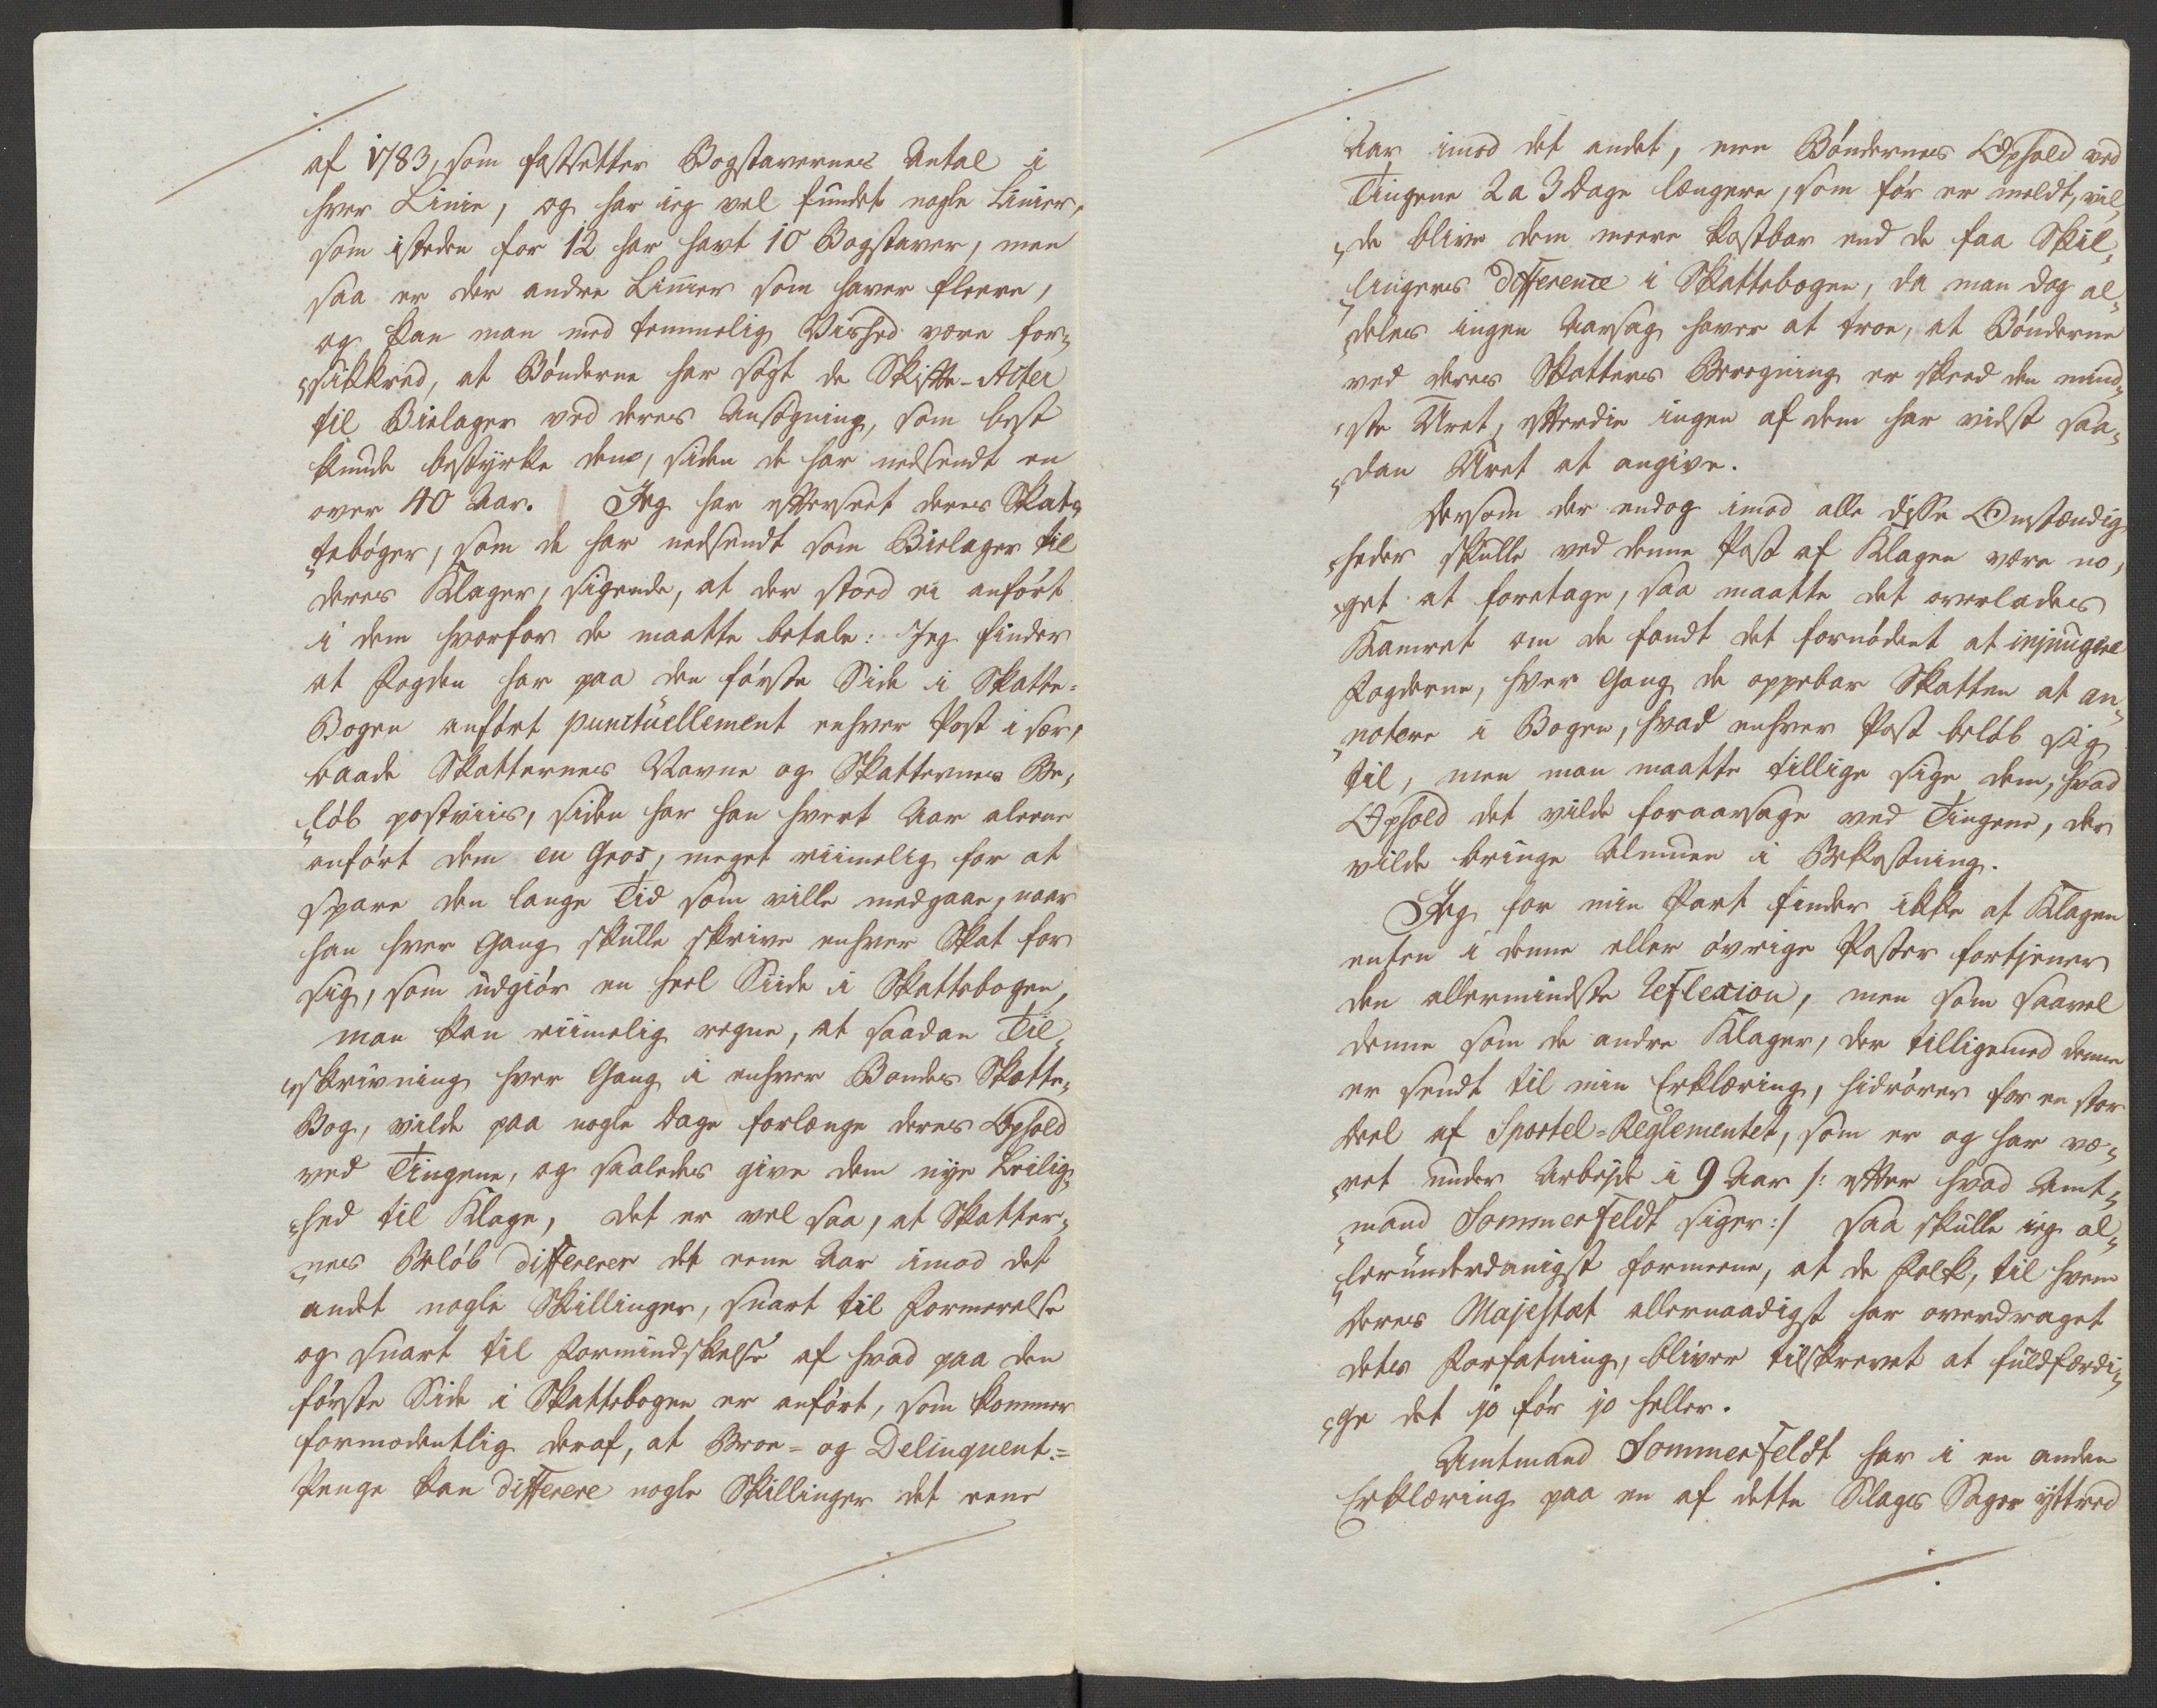 af 1783, som fastsetter Bogstavernes Antal i
hver Linie, og har ieg vel fundet nogle Linier,
som isteden for 12 har havt 10 Bogstaver, men
saa er der andre Linier som haver fleere,
og kan man med temmelig Vished være for¬
„sikkred, at Bönderne har sögt de Skifte-Acter
til Bielager ved deres Ansögning, som best
kunde bestyrke den, siden de har nedsendt en
over 40 Aar. Jeg har efterseet deres Skat¬
„tebøger, som de har nedsendt som Bielager til
deres Klager, sigende, at der stoed ei anfört
i dem hvorfor de maatte betale: Jeg finder
at Fogden har paa den förste Side i Skatte-
Bogen anfört punctuellement enhver Post i sær,
baade Skatternes Navne og Skatternes Be¬
„löb postviis, siden har han hvert Aar aleene
anfört dem en Gros, meget riimelig for at
spare den lange Tid som ville medgaae, naar
han hver Gang skulle skrive enhver Skat for
sig, som udgiör en heel Siide i Skattebogen,
man kan riimelig regne, at saadan Til¬
„skrivning hver Gang i enhver Bondes Skatte¬
Bog, vilde paa nogle Dage forlænge deres Ophold
ved Tingene, og saaledes give dem nye Leilig¬
„hed til Klage, det er vel saa, at Skatter¬
„nes Belöb differerer det eene Aar imod det
andet nogle Skillinger, snart til Formerelse
og snart til Formindskelse af hvad paa den
förste Side i Skattebogen er anfört, som kommer
formodentlig deraf, at Broe- og Delinquent-
Penge kan differere nogle Skillinger det eene
Aar imod det andet, men Böndernes Ophold ved
Tingene 2 a 3 Dage længere, som för er meldt, vil¬
„de blive dem meere kostbar end de faa Skil¬
„lingers Difference i Skattebogen, da man dog al¬
„deles ingen Aarsag haver at troe, at Bönderne
ved deres Skatters Beregning er skeed den mind¬
„ste Uret, efterdie ingen af dem har vidst saa¬
„dan Uret at angive.
Dersom der endog imod alle disse Omstændig¬
„heder skulle ved denne Post af Klagen være no¬
„get at foretage, saa maatte det overlades
Kamret om de fandt det fornödent at injungere
Fogderne, hver Gang de oppebar Skatten at an¬
„notere i Bogen, hvad enhver Post belöb sig
til, men man maatte tillige sige dem, hvad
Ophold det vilde foraarsage ved Tingene, der
vilde bringe Almuen i Bekostning.
Jeg for min Part finder ikke at Klagen
enten i denne eller övrige Poster fortjener
den allermindste Reflexion, men som saavel
denne som de andre Klager, der tilligemed denne
er sendt til min Erklæring, hidrörer for en stor
Deel af Sportel-Reglementet, som er og har væ¬
„ret under Arbejde i 9 Aar /: efter hvad Amt¬
„mand Sommerfeldt siger :/ saa skulle ieg al¬
„lerunderdanigst formeene, at de Folk, til hvem
Deres Majestæt allernaadigst har overdraget
detes Forfatning, bliver tilskrevet at fuldfærdi¬
„ge det jo för jo heller.
Amtmand Sommerfeldt har i en anden
Erklæring paa en af dette Slags Sager yttred